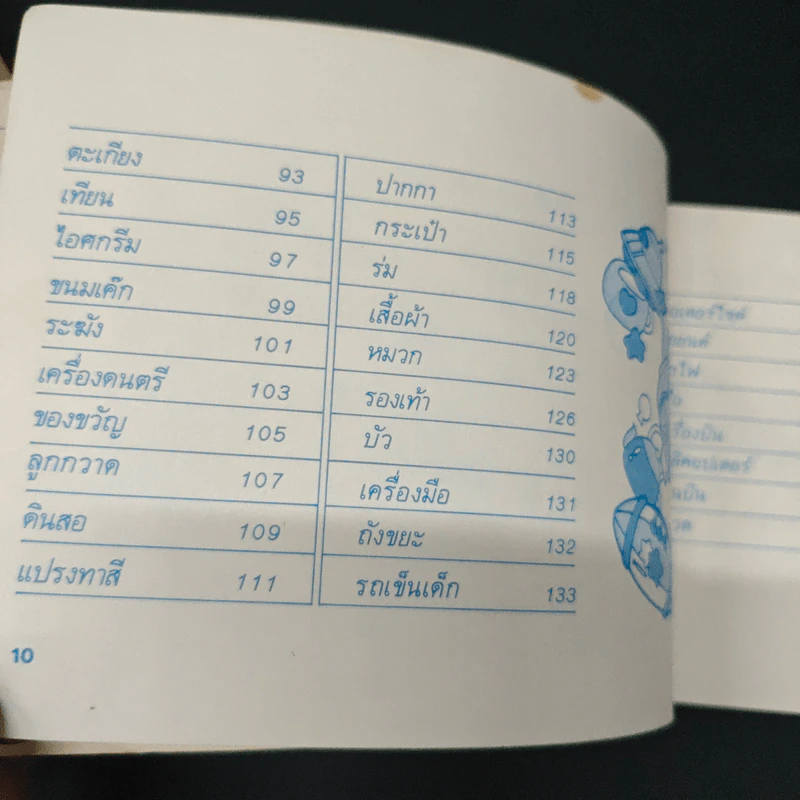 ตะเกียง 93
เทียน 95
ไอศกรีม 97
ขนมเค๊ก 99
ระฆัง 101
เครื่องดนตรี 103
ของขวัญ 105
ลูกกวาด 107
ดินสอ 109
แปรงทาสี 111
ปากกา 113
กระเป๋า 115
ร่ม 118
เสื้อผ้า 120
หมวก 123
รองเท้า 126
บัว 130
เครื่องมือ 131
ถังขยะ 132
รถเข็นเด็ก 133
10